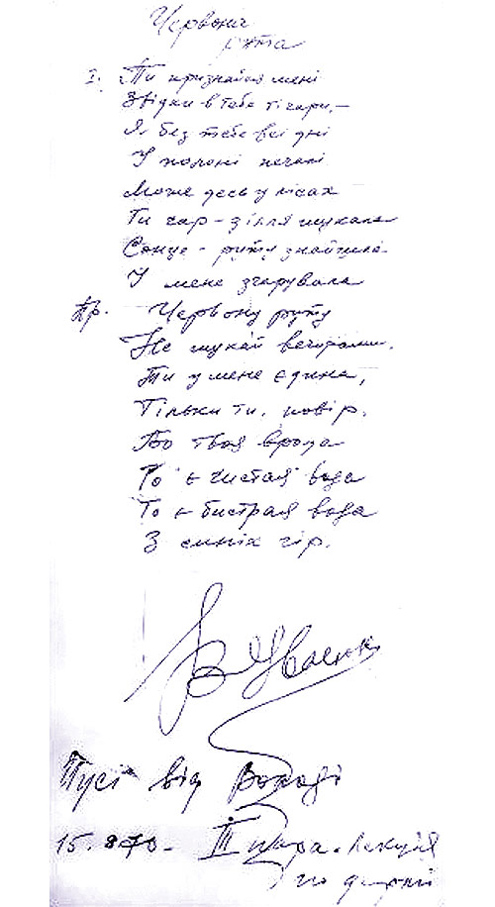 Червона
рута
I. Ти признайся мені
Звідки в тебе ті чари, —
Я без тебе всі дні
У полоні печалі
Може десь у лісах
Ти чар-зілля шукала
Сонце-руту знайшла
У мене зчарувала
Пр. Червону руту
Не шукай вечорами.
Ти у мене єдина,
Тільки ти, повір.
Бо твоя врода
То є чистая вода
То є бистрая вода
З синіх гір.
В Івасюк
Тусі від Володі
15.870- III пара. лекція
по